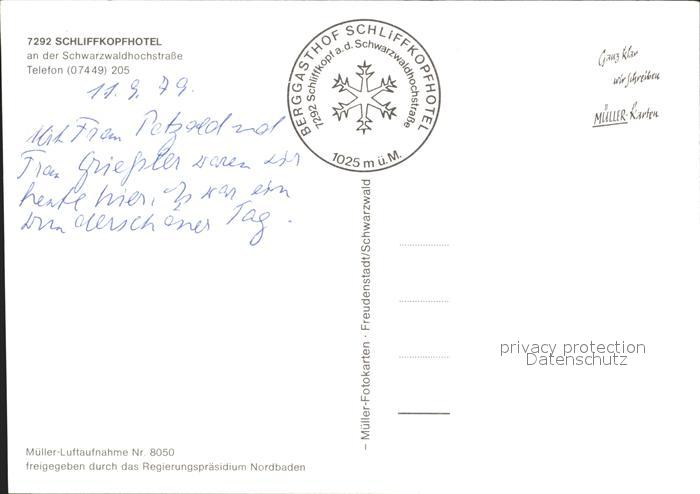 7292 SCHLIFFKOPFHOTEL
an der Schwarzwaldhochstraße
Telefon (07449) 205
11.9.79.
Mit Frau Petzold und
Frau Grießler waren wir
heute hier. Es war ein
wunderschöner Tag.
BERGGASTHOF SCHLIFFKOPFHOTEL
7292 Schliffkopf a.d. Schwarzwaldhochstraße
1025 m ü.M.
Ganz klar
wir schreiben
MÜLLER-Karten
– Müller-Fotokarten · Freudenstadt/Schwarzwald
privacy protection
Datenschutz
Müller-Luftaufnahme Nr. 8050
freigegeben durch das Regierungspräsidium Nordbaden